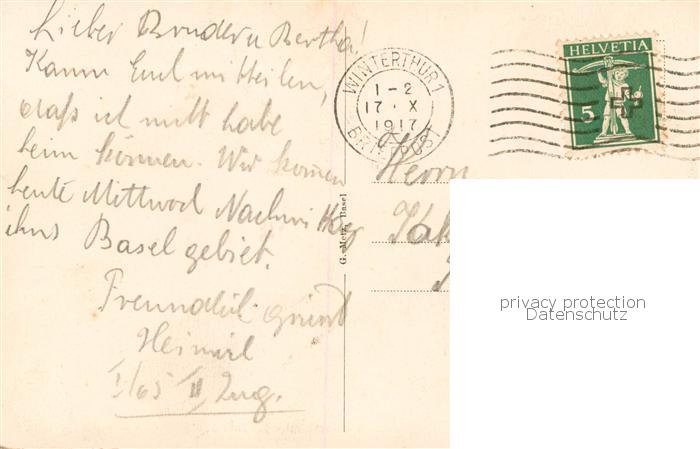 Lieber Bruder u Bertha!
Kann Euch mitteilen,
daß ich nicht habe
heim können. Wir kommen
heute Mittwoch Nachmittag
ins Baselgebiet.
Freundlich grüsst
Heinrich
I/65 II Zug.
G. Metz, Basel
WINTERTHUR 1
1-2
17. X
1917
BRIEFPOST
HELVETIA
5
Herrn
privacy protection
Datenschutz